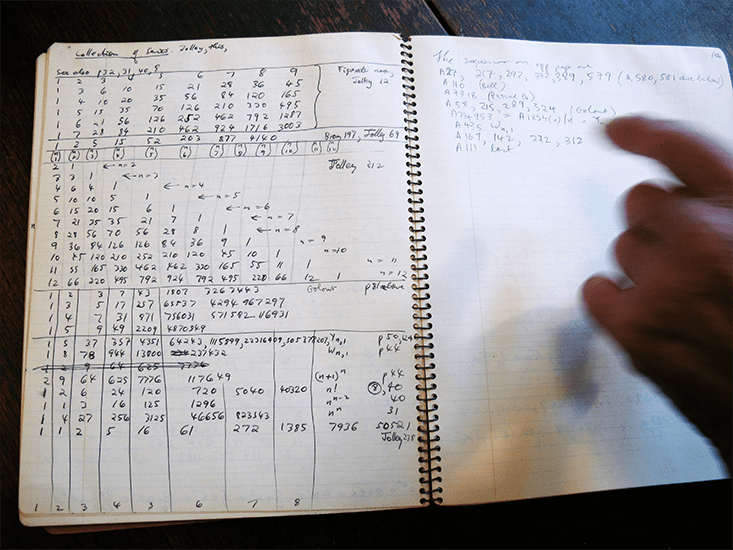 Collection of Series. Jolley, this,
See also p32, 31, 40, 8
1 2 3 4 5 6 7 8 9
1 3 6 10 15 21 28 36 45
1 4 10 20 35 56 84 120 165
1 5 15 35 70 126 210 330 495
1 6 21 56 126 252 462 792 1287
1 7 28 84 210 462 924 1716 3003
Figurate nos,
Jolley 12
1 2 5 15 52 203 877 4140
Jolley 69
2 1 ← n=2
3 3 1 ← n=3
4 6 4 1 ← n=4
5 10 10 5 1 ← n=5
6 15 20 15 6 1 ← n=6
7 21 35 35 21 7 1 ← n=7
8 28 56 70 56 28 8 1 ← n=8
9 36 84 126 126 84 36 9 1 n=9
10 45 120 210 252 210 120 45 10 1 n=10
11 55 165 330 462 462 330 165 55 11 1 n=11
12 66 220 495 792 924 792 495 220 66 12 1 n=12
Jolley 212
1 2 3 7 43 1807 3263443 Golomb
1 3 5 17 257 65537 4294967297
1 4 7 31 871 756031
1 5 9 49 2209 4870849
1 5 37 357 4351 64243
1 8 78 944 13800 237432 Wn,1 p44
2 9 64 625 7776 117649 (n+1)ⁿ p44
1 2 6 24 120 720 5040 40320 n! 8, 40
1 1 3 16 125 1296 nⁿ⁻² 40
1 4 27 256 3125 46656 823543 nⁿ 31
1 1 2 5 16 61 272 1385 7936 50521
Jolley 235
1 2 3 4 5 6 7 8
The sequences on
217, 292,
389, 579
A110 (Bell)
A58, 215, 289, 324 (Golomb)
A435 Wn,1
A169, 142, 272, 312
A111 last